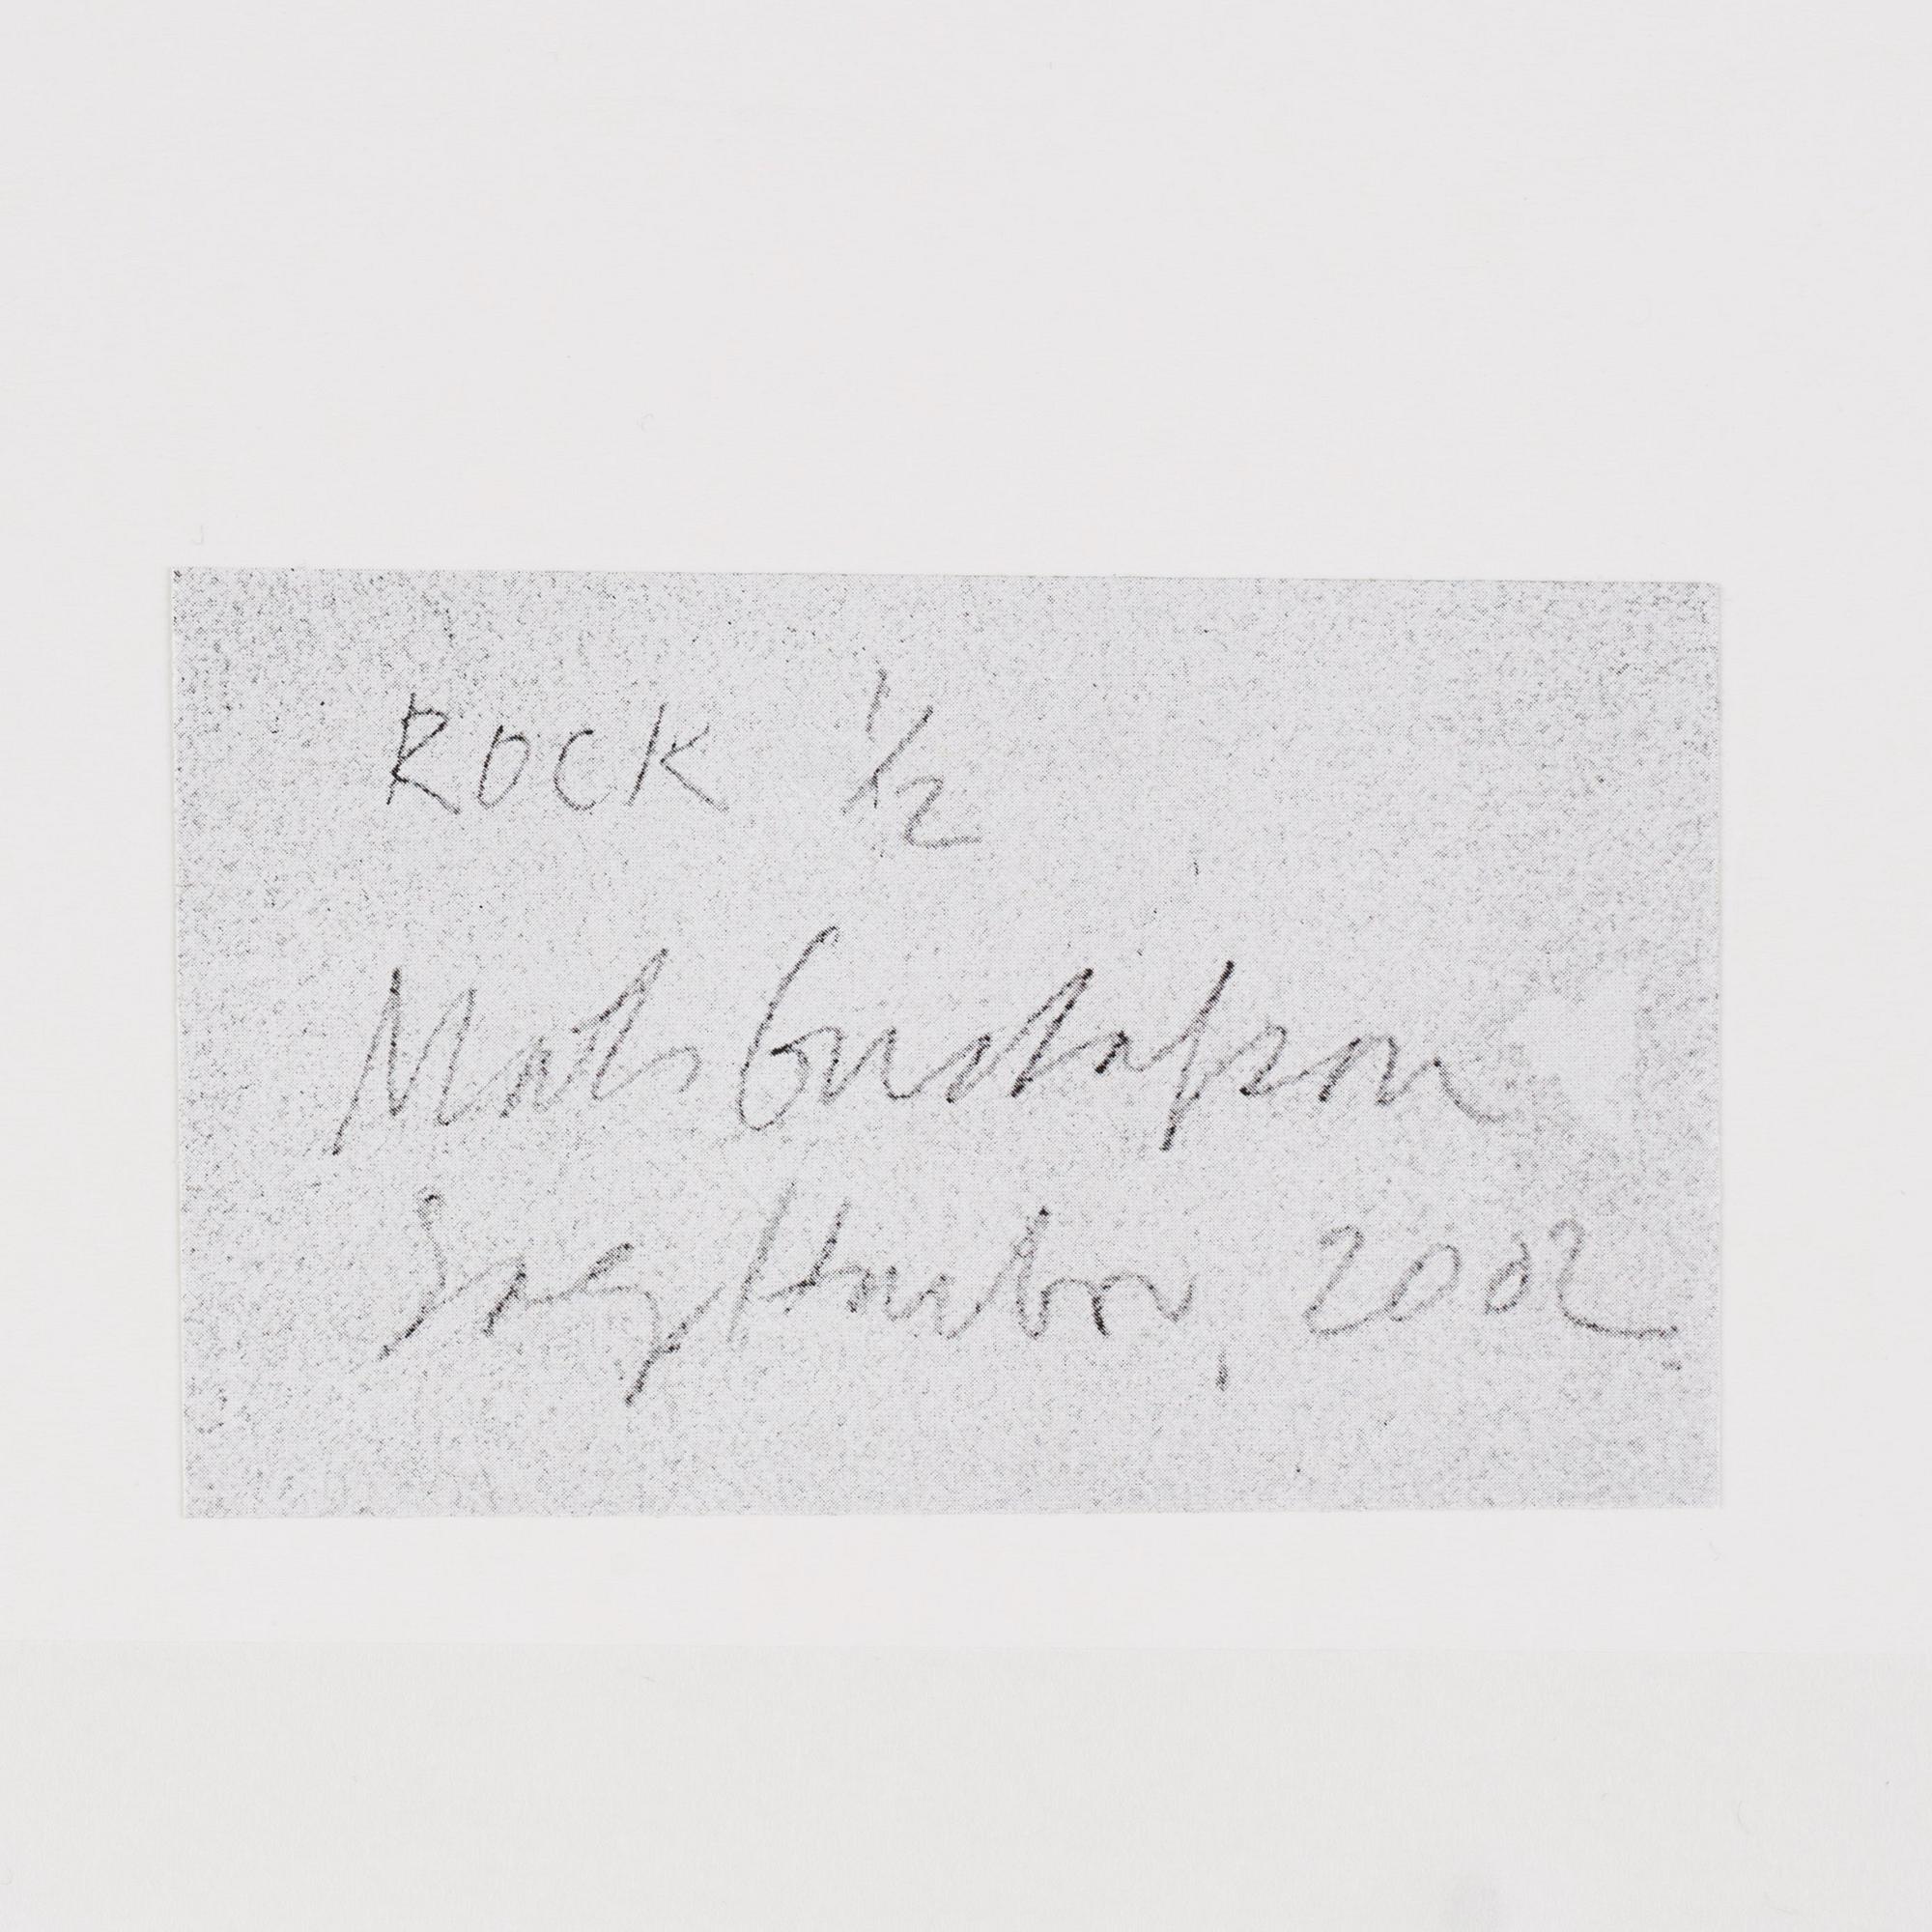 ROCK 1/2
Mats Gustafson
Sag Harbor, 2002